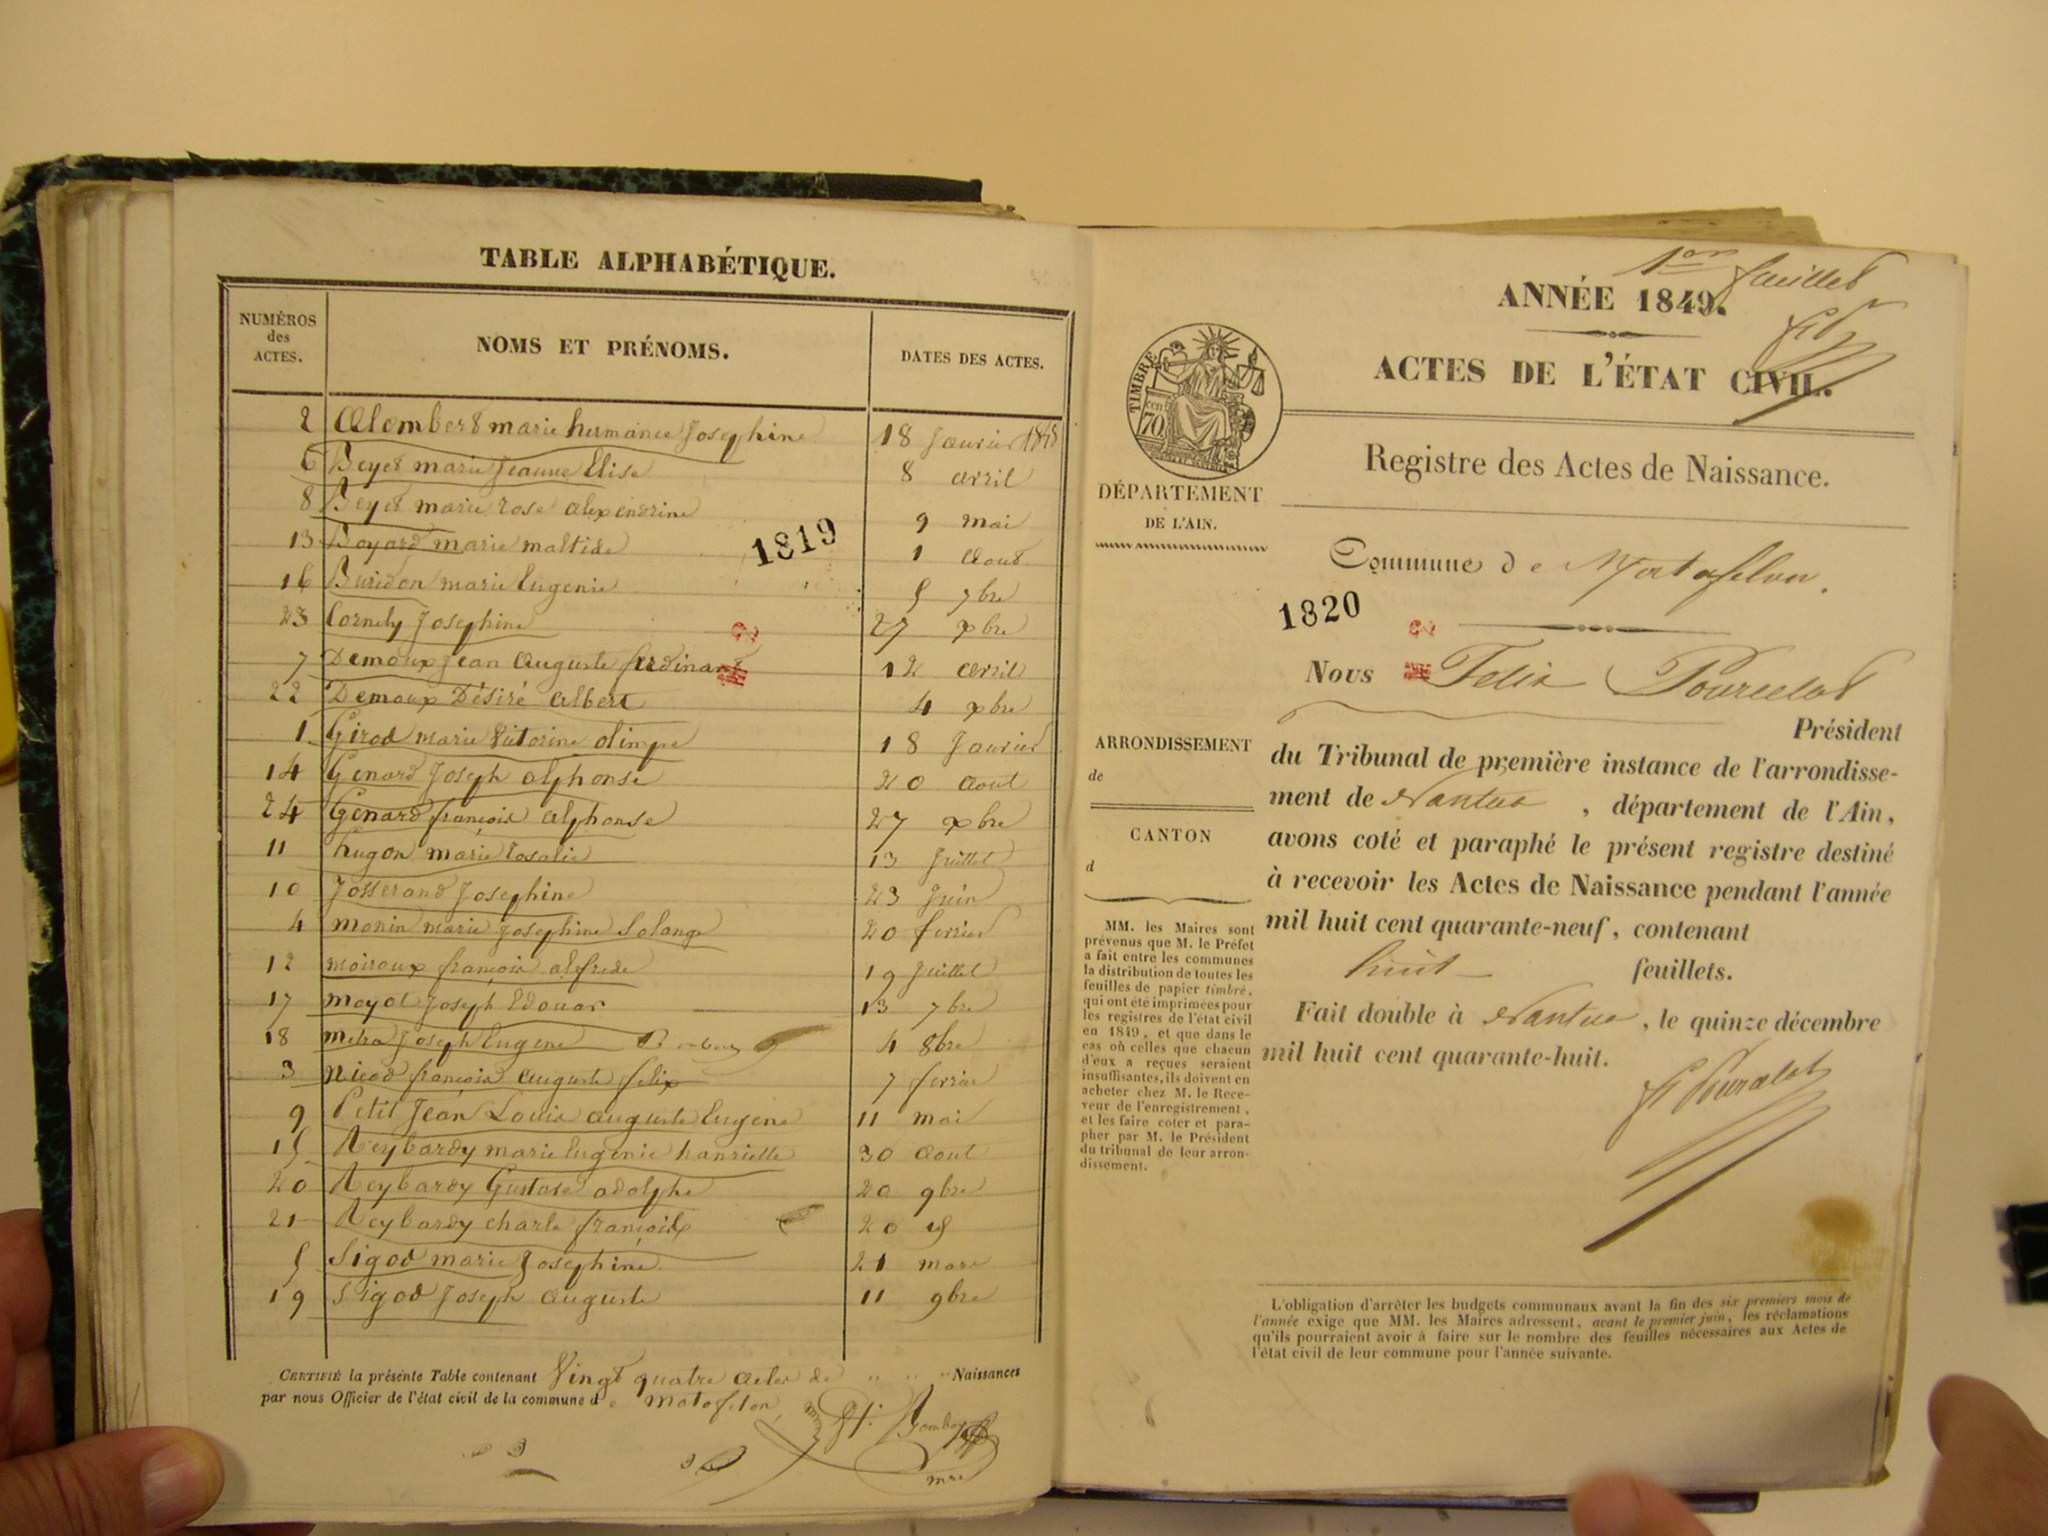 TABLE ALPHABÉTIQUE.
NUMÉROS des ACTES. NOMS ET PRÉNOMS. DATES DES ACTES.
2 Alombert marie hermance Josephine 18 Janvier 1848
6 Beyet marie Jeanne Elise 8 avril
8 Beyet marie rose alexendrine 9 mai
13 Boyard marie maltide 1 Aout
1819
16 Buridon marie Eugenie 5 7bre
23 Cornely Josephine 27 xbre
7 Demoux Jean Auguste ferdinant 12 avril
22 Demoux Désiré albert 4 xbre
1 Girod marie Victorine olimpe 18 Janvier
14 Genard Joseph alphonse 20 Aout
24 Genard françois alphonse 27 xbre
11 hugon marie rosalie 13 Juillet
10 Josserand Josephine 23 Juin
4 monin marie Josephine Solange 20 fevrier
12 moiroux françois alfrede 19 Juillet
17 moyot Joseph Edouar 13 7bre
18 metra Joseph Eugene 4 8bre
3 nicod françois auguste felix 7 fevrier
9 Petit Jean Louis auguste Eugene 11 mai
15 Reybardy marie Eugénie hanriette 30 Aout
20 Reybardy Gustave adolphe 20 9bre
21 Reybardy charle françois 20 id
5 Sigod marie Josephine 21 mars
19 Sigod Joseph auguste 11 9bre
CERTIFIÉ la présente Table contenant Vingt quatre actes de Naissances
par nous Officier de l'état civil de la commune de matafelon
mre
1er feuillet
ANNÉE 1849.
ACTES DE L'ÉTAT CIVIL.
TIMBRE
70
Registre des Actes de Naissance.
DÉPARTEMENT
DE L'AIN.
Commune de Matafelon.
1820
Nous Felix Pourcelot
Président
du Tribunal de première instance de l'arrondisse-
ment de Nantua, département de l'Ain,
avons coté et paraphé le présent registre destiné
à recevoir les Actes de Naissance pendant l'année
mil huit cent quarante-neuf, contenant
huit feuillets.
Fait double à Nantua, le quinze décembre
mil huit cent quarante-huit.
F Pourcelot
ARRONDISSEMENT
de
CANTON
d
MM. les Maires sont
prévenus que M. le Préfet
a fait entre les communes
la distribution de toutes les
feuilles de papier timbré,
qui ont été imprimées pour
les registres de l'état civil
en 1849, et que dans le
cas où celles que chacun
d'eux a reçues seraient
insuffisantes, ils doivent en
acheter chez M. le Rece-
veur de l'enregistrement,
et les faire coter et para-
pher par M. le Président
du tribunal de leur arron-
dissement.
L'obligation d'arrêter les budgets communaux avant la fin des six premiers mois de
l'année exige que MM. les Maires adressent, avant le premier juin, les réclamations
qu'ils pourraient avoir à faire sur le nombre des feuilles nécessaires aux Actes de
l'état civil de leur commune pour l'année suivante.